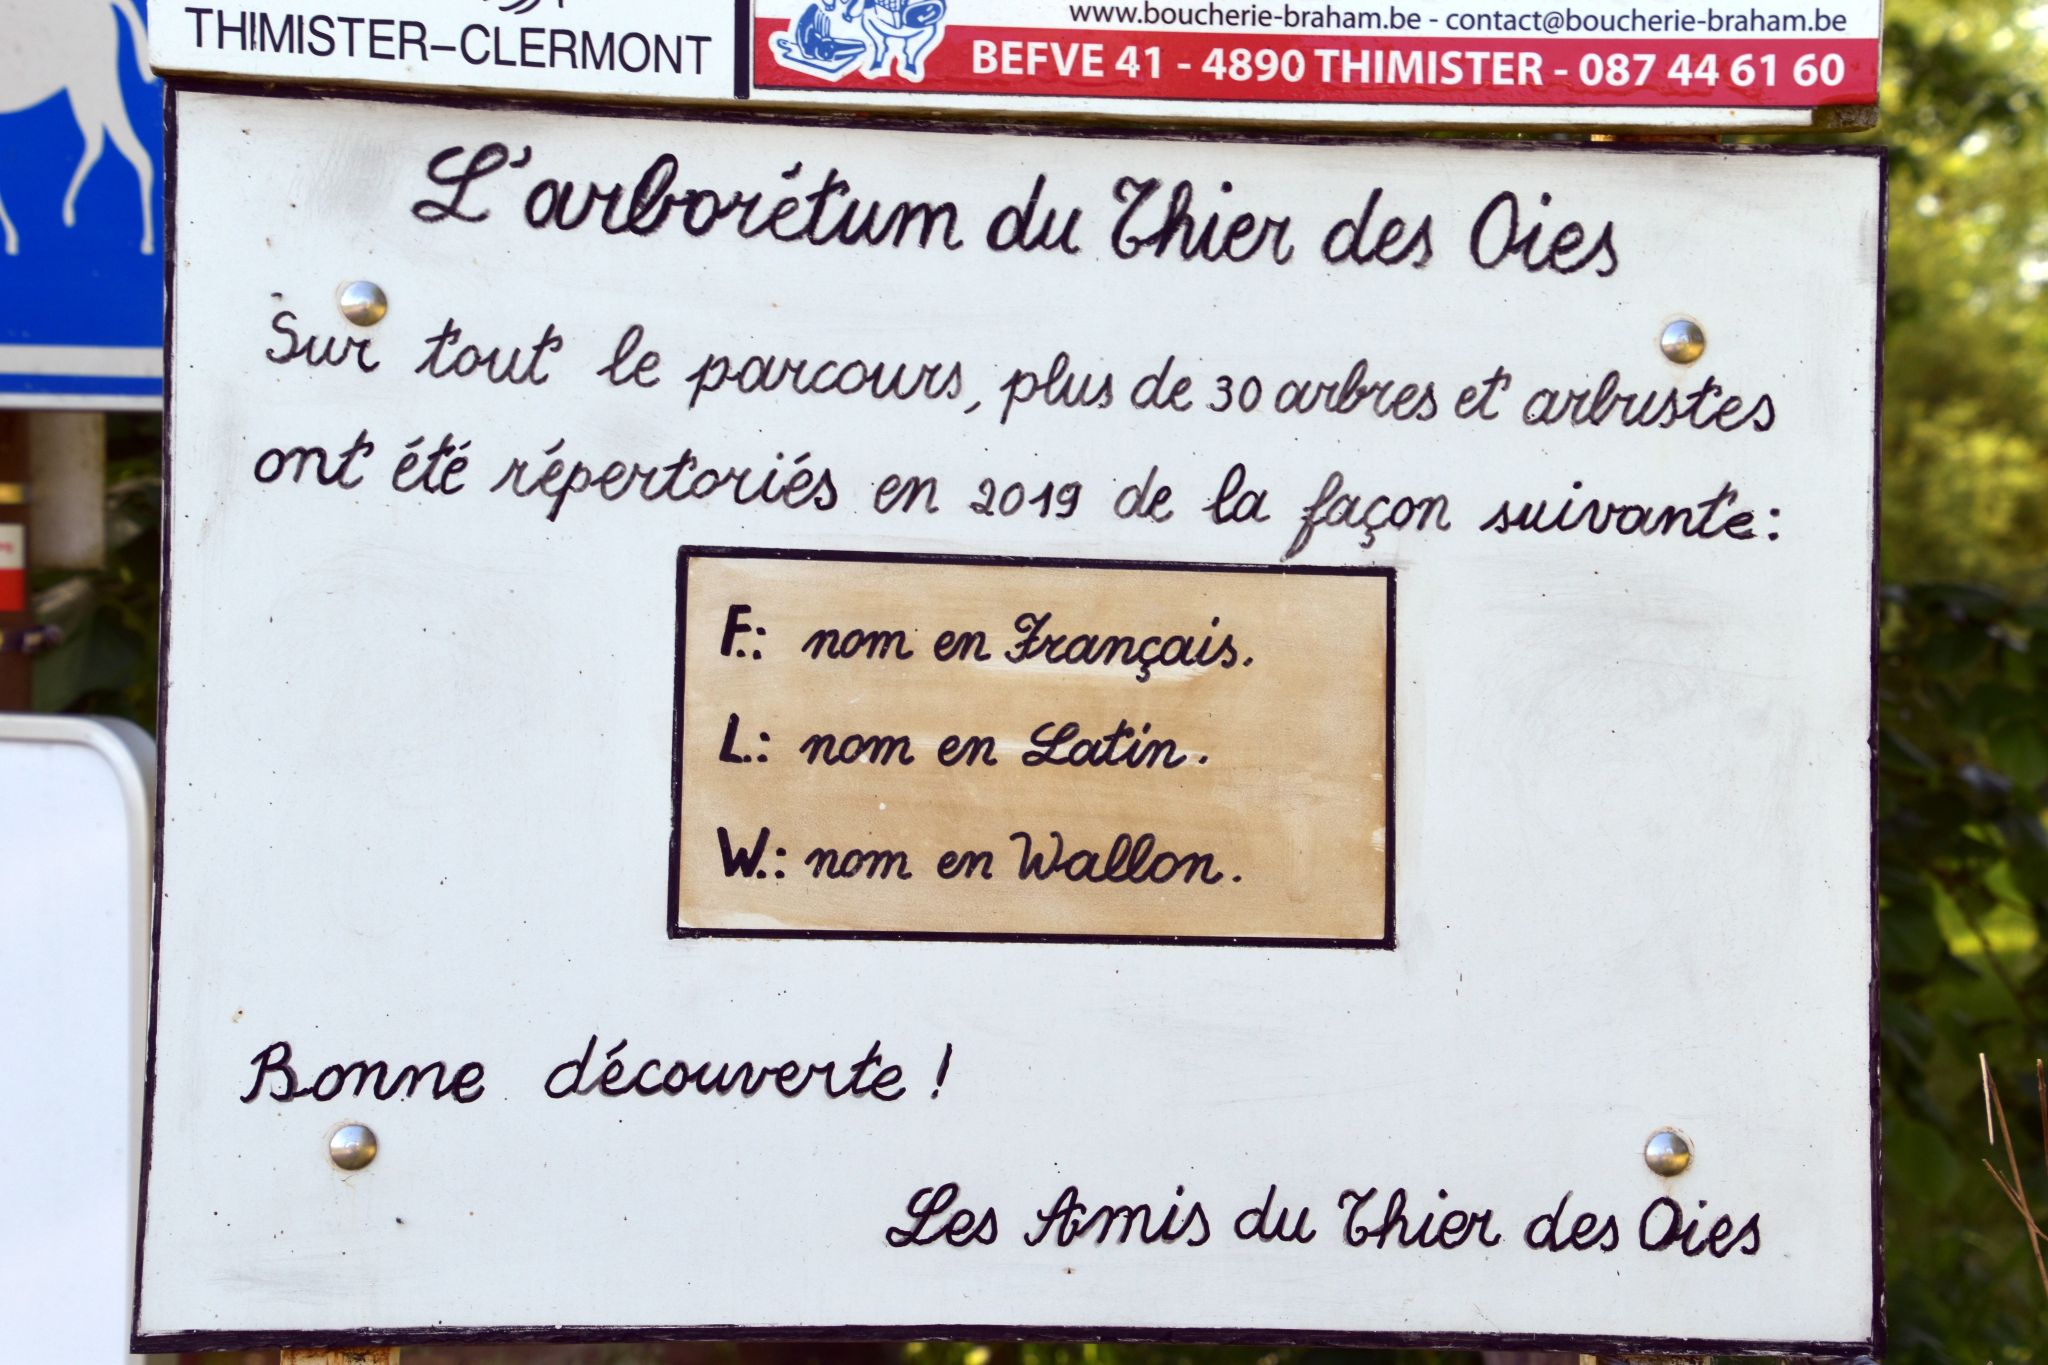 THIMISTER-CLERMONT
www.boucherie-braham.be - contact@boucherie-braham.be
BEFVE 41 - 4890 THIMISTER - 087 44 61 60
L'arborétum du Thier des Oies
Sur tout le parcours, plus de 30 arbres et arbustes
ont été répertoriés en 2019 de la façon suivante:
F.: nom en Français.
L.: nom en Latin.
W.: nom en Wallon.
Bonne découverte !
Les Amis du Thier des Oies